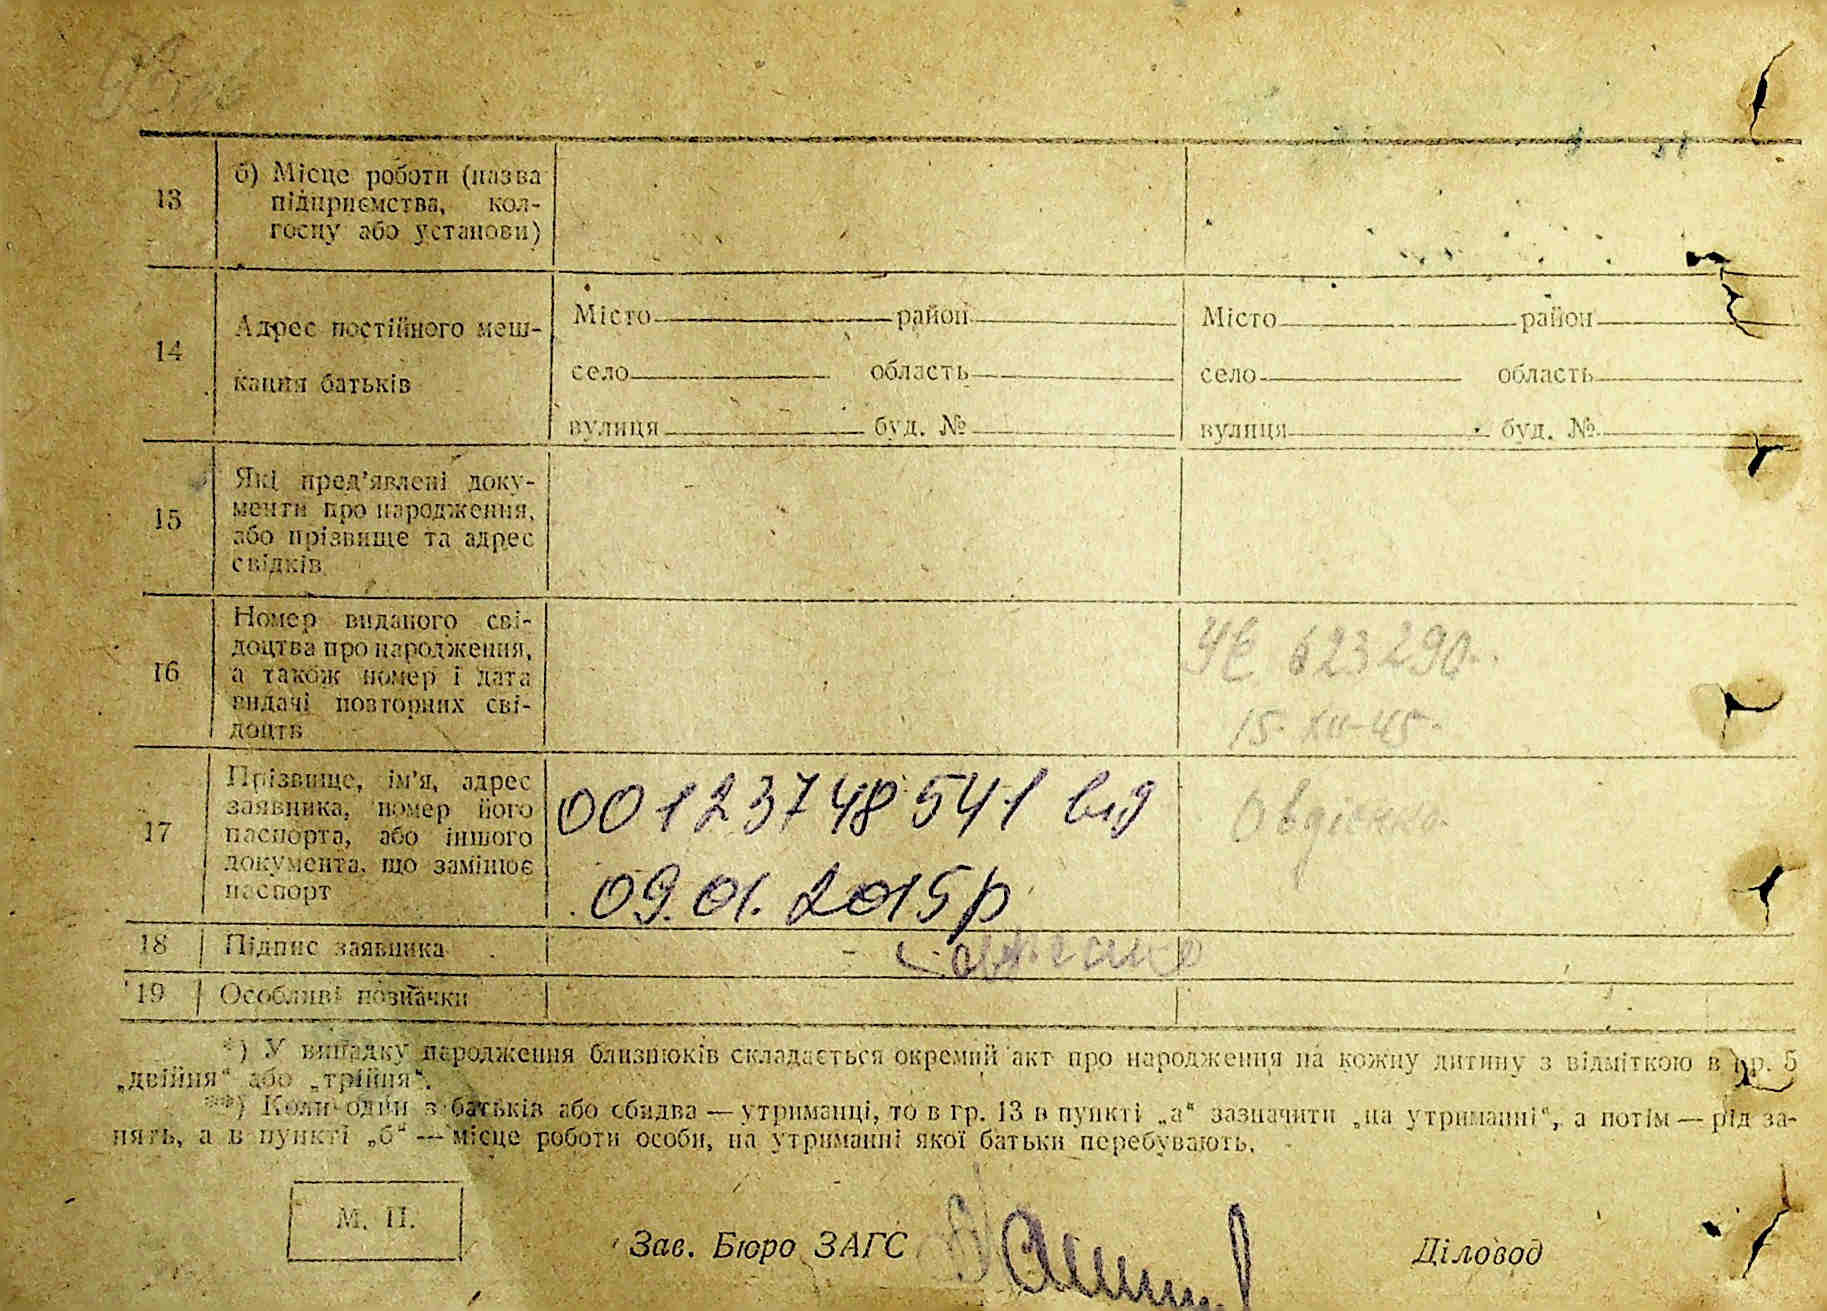 13
б) Місце роботи (назва
підприємства, кол-
госпу або установи)
14
Адрес постійного меш-
кання батьків
Місто район
село область
вулиця буд. №
Місто район
село область
вулиця буд. №
15
Які пред'явлені доку-
менти про народження,
або прізвище та адрес
свідків
16
Номер виданого сві-
доцтва про народження,
а також номер і дата
видачі повторних сві-
доцтв
УЕ 623290.
15-XII-45-
17
Прізвище, ім'я, адрес
заявника, номер його
паспорта, або іншого
документа, що замінює
паспорт
00123748541 від
09.01.2015р
Овдієнко
18 Підпис заявника
19 Особливі позначки
*) У випадку народження близнюків складається окремий акт про народження на кожну дитину з відміткою в гр. 5
„двійня“ або „трійня“.
**) Коли один з батьків або обидва — утриманці, то в гр. 13 в пункті „а“ зазначити „на утриманні“, а потім — рід за-
нять, а в пункті „б“ — місце роботи особи, на утриманні якої батьки перебувають.
М. П.
Зав. Бюро ЗАГС
Діловод